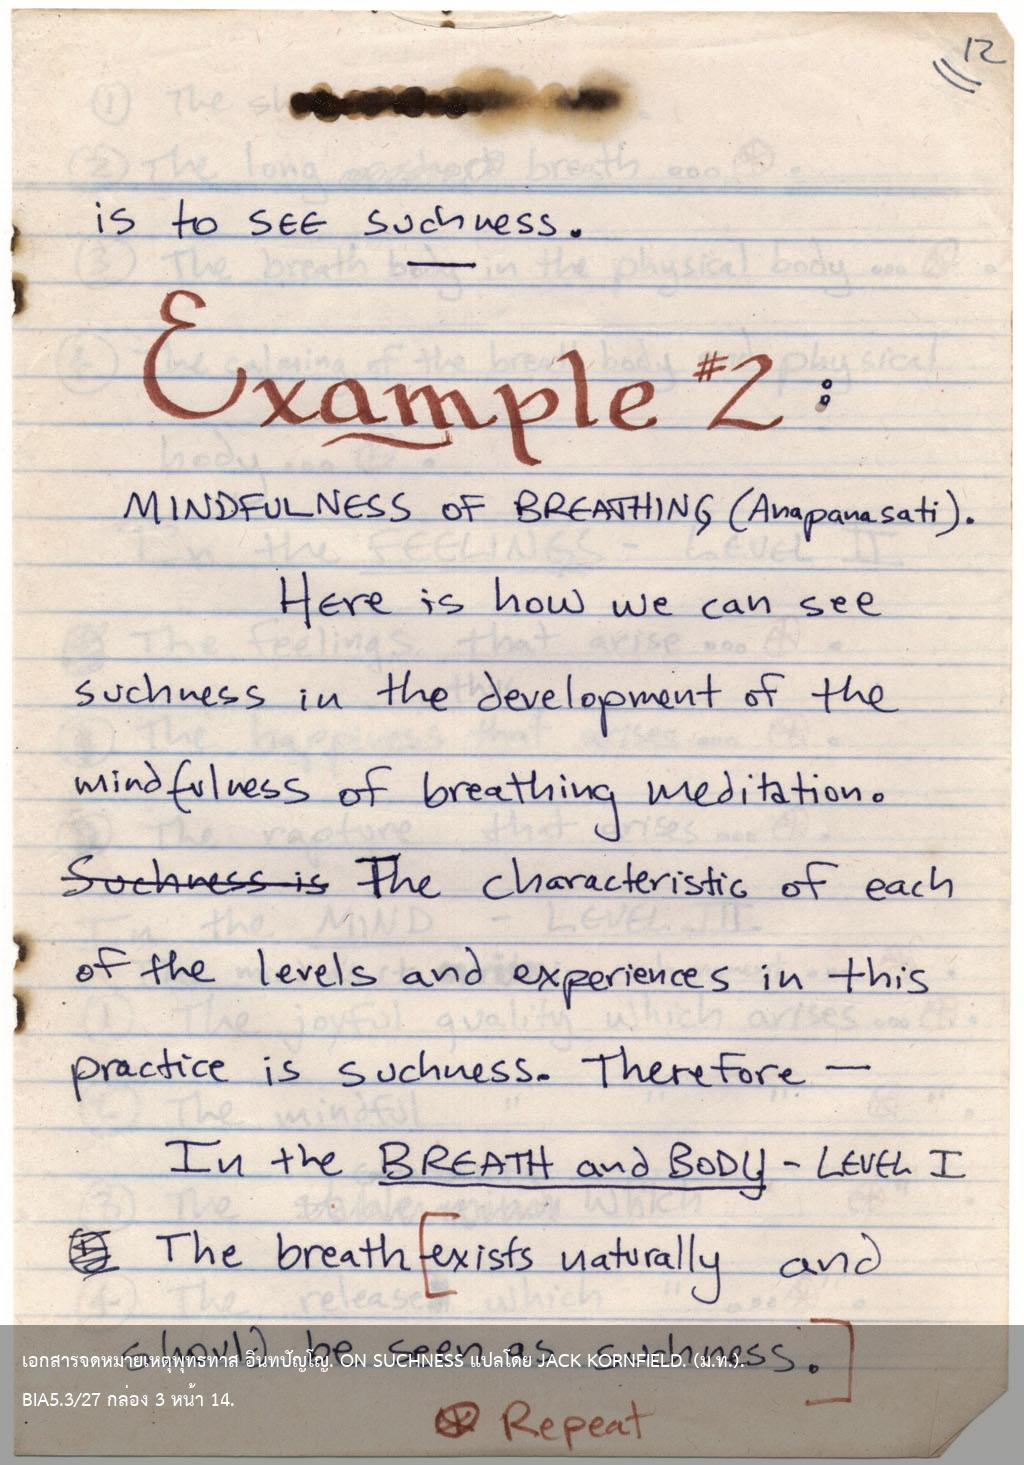 12
is to SEE suchness.
Example #2:
MINDFULNESS OF BREATHING (Anapanasati).
Here is how we can see
suchness in the development of the
mindfulness of breathing meditation.
Suchness is The characteristic of each
of the levels and experiences in this
practice is suchness. Therefore —
In the BREATH and BODY - LEVEL I
The breath [exists naturally and
should be seen as suchness.]
เอกสารจดหมายเหตุพุทธทาส อินทปัญโญ. ON SUCHNESS แปลโดย JACK KORNFIELD. (ม.ท.).
BIA5.3/27 กล่อง 3 หน้า 14.
⊛ Repeat